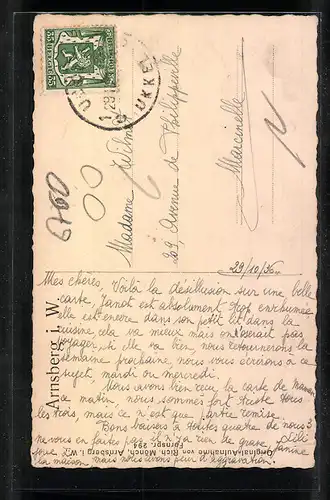 BELGIQUE
35
UKKEL
Madame Wilmet
29, Avenue de Philippeville
Marcinelle
6760
Arnsberg i. W.
Originalaufnahme von Rich. Mönch, Arnsberg i. W.
Fernspr. 294
29/10/36
Mes chères, Voilà la désillusion sur une belle
carte, Janot est absolument trop enrhumée
elle est encore dans son petit lit dans la
cuisine cela va mieux mais on n'oserait pas
voyager, si elle va bien, nous retournerons la
semaine prochaine, nous vous écrirons à ce
sujet, mardi ou mercredi.
Nous avons bien reçu la carte de maman
ce matin, nous sommes fort triste tous
les trois, mais ce n'est que partie remise.
Bons baisers à toutes quatre de nous 3
ne vous en faites pas il n'y a rien de grave
la maison, mais nous avons peur d'aggravation.
Janine